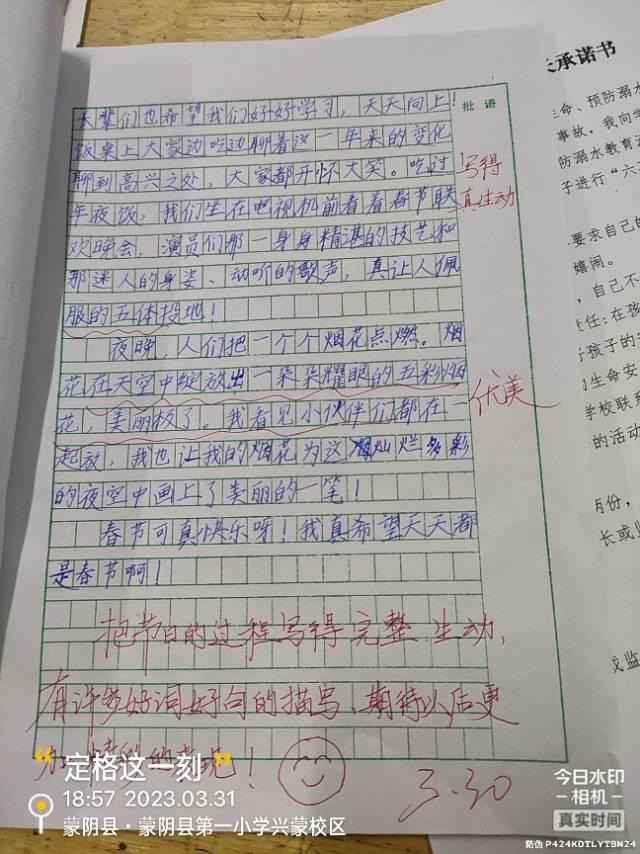 批语
长辈们也希望我们好好学习，天天向上！
饭桌上大家边吃边聊着这一年来的变化
聊到高兴之处，大家都开怀大笑。吃过
年夜饭，我们坐在电视机前看着春节联
欢晚会，演员们那一身身精湛的技艺和
那迷人的身姿、动听的歌声，真让人佩
服的五体投地！
夜晚，人们把一个个烟花点燃。烟
花在天空中绽放出一朵朵耀眼的五彩烟
花，美丽极了。我看见小伙伴们都在一
起放，我也让我的烟花为这灿烂多彩
的夜空中画上了美丽的一笔！
春节可真快乐呀！我真希望天天都
是春节啊！
写得
真生动
优美
把节日的过程写得完整生动，
有许多好词好句的描写，期待以后更
加精彩的表现！
3.30
承诺书
生命、预防溺水
事故，我向学
防溺水教育
子进行“六
要求自己的
嬉闹。
，自己不
责任：在孩
孩子的
生命安
学校联系
的活动
月份，
长或
监
定格这一刻
18:57 2023.03.31
蒙阴县·蒙阴县第一小学兴蒙校区
今日水印
-相机-
真实时间
防伪 P424KDTLYTBN24